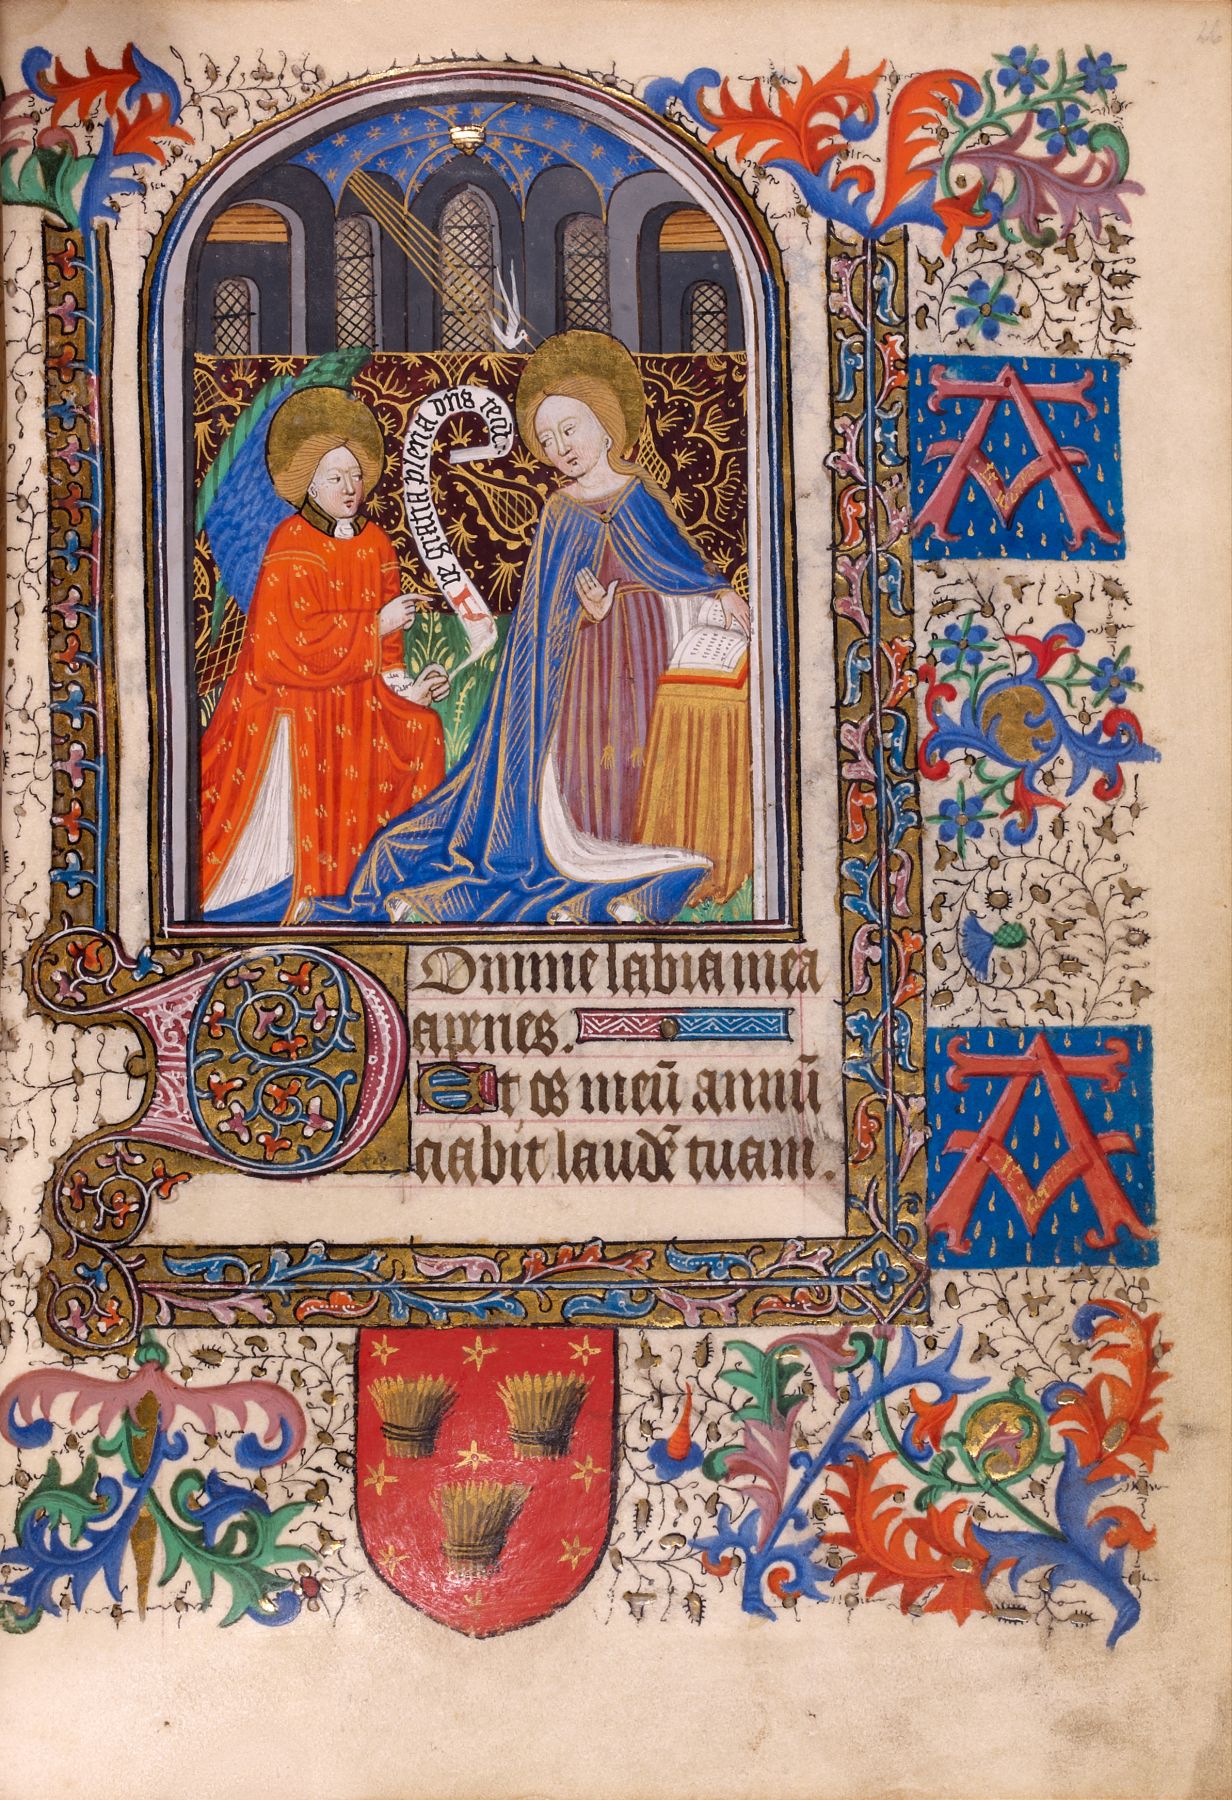 26
Aue gratia plena dñs tecū
A
Domine labia mea
aperies.
Et os meū annū
ciabit laudē tuam.
A